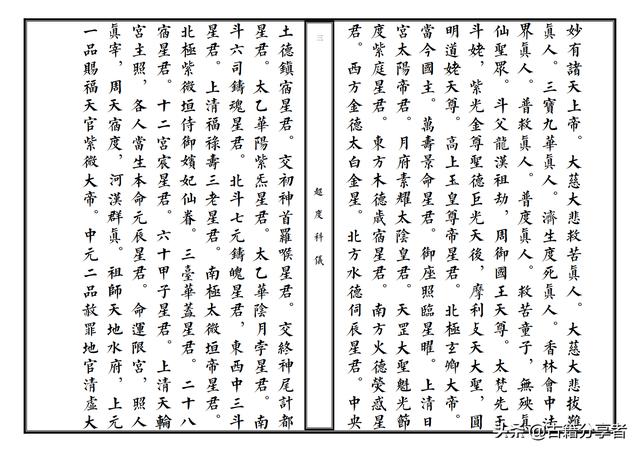 妙有諸天上帝。大慈大悲救苦眞人。大慈大悲拔難
眞人。三寶九華眞人。濟生度死眞人。香林會中法
界眞人。普救眞人。普度眞人。救苦童子，無殃眞
仙聖眾。斗父龍漢祖劫，周御國王天尊。太梵先天
斗姥，紫光金尊聖德巨光天後，摩利攴天大聖，圓
明道姥天尊。高上玉皇尊帝星君。北極玄卿大帝。
當今國主。萬壽景命星君。御座照臨星曜。上清日
宮太陽帝君。月府素耀太陰皇君。天罡大聖魁光節
度紫庭星君。東方木德歲宿星君。南方火德熒惑星
君。西方金德太白金星。北方水德伺辰星君。中央
超度科儀
三
土德鎮宿星君。交初神首羅睺星君。交終神尾計都
星君。太乙華陽紫炁星君。太乙華陰月孛星君。南
斗六司鑄魂星君。北斗七元鑄魄星君，東西中三斗
星君。上清福祿壽三老星君。南極太微垣帝星君。
北極紫微垣侍御嬪妃仙眷。三臺華蓋星君。二十八
宿星君。十二宮宸星君。六十甲子星君。上清天輪
宮主照，各人當生本命元辰星君。命運限宮，照人
眞宰，周天宿度，河漢群眞。祖師天地水府，上元
一品賜福天官紫微大帝。中元二品赦罪地官清虛大
头条@古籍分享者